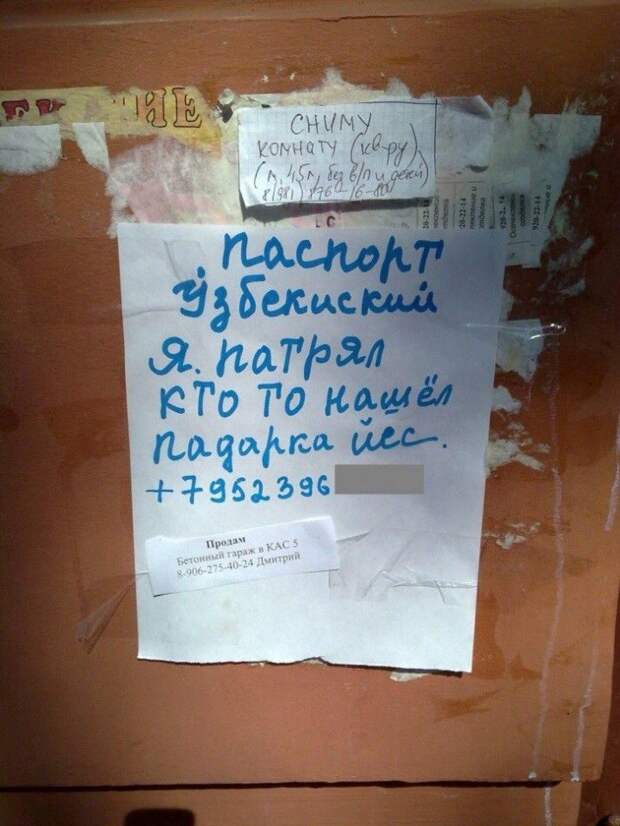 СНИМУ
КОМНАТУ (кв-ру)
ПАСПОРТ
Ўзбекиский
Я. ПАТРЯЛ
КТО ТО нашёл
падарка йес.
+7952396
Продам
Бетонный гараж в КАС 5
8-906-275-40-24 Дмитрий